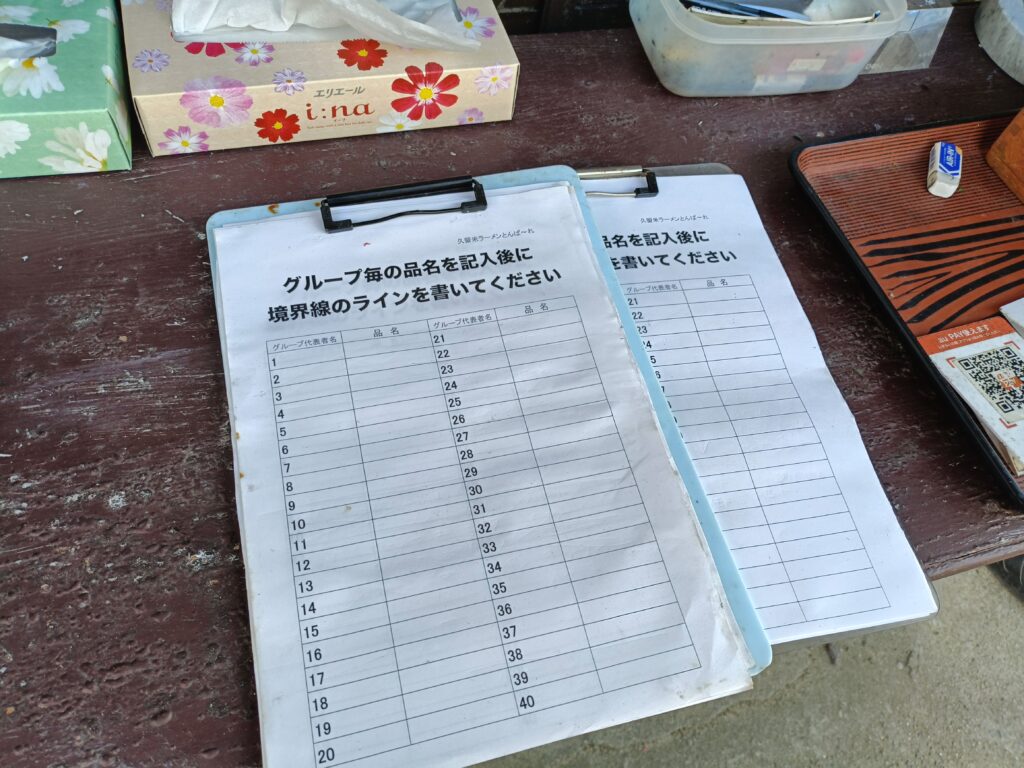 エリエール
i:na
久留米ラーメンとんぱ~れ
グループ毎の品名を記入後に
境界線のラインを書いてください
グループ代表者名 品名 グループ代表者名 品名
1 21
2 22
3 23
4 24
5 25
6 26
7 27
8 28
9 29
10 30
11 31
12 32
13 33
14 34
15 35
16 36
17 37
18 38
19 39
20 40
久留米ラーメンとんぱ~れ
品名を記入後に
を書いてください
グループ代表者名 品名
21
22
23
24
AIR-IN
au PAY使えます